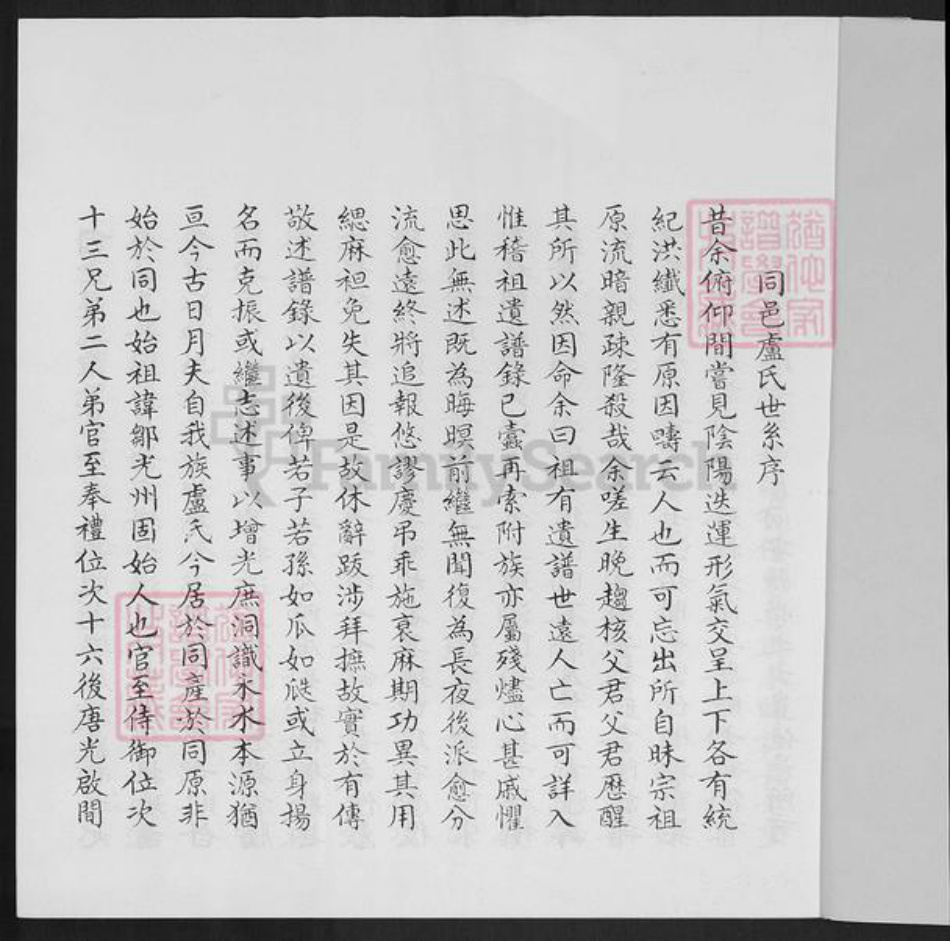 同邑盧氏世系序
昔余俯仰間嘗見陰陽迭運形氣交呈上下各有統
紀洪纖悉有原因疇云人也而可忘出所自昧宗祖
原流暗親疎隆殺哉余嗟生晚趨核父君父君歷醒
其所以然因命余曰祖有遺譜世遠人亡而可詳入
惟稽祖遺譜錄已蠹再索附族亦屬殘燼心甚戚懼
思此無述既為晦暝前繼無聞復為長夜後派愈分
流愈遠終將追報悠謬慶吊乖施衰麻期功異其用
緦麻袒免失其因是故休辭跋涉拜摭故實於有傳
敬述譜錄以遺後俾若子若孫如瓜如瓞或立身揚
名而克振或繼志述事以增光庶洞識永水本源猶
亘今古日月夫自我族盧氏今居於同產於同原非
始於同也始祖諱鄒光州固始人也官至侍御位次
十三兄弟二人弟官至奉禮位次十六後唐光啟間
FamilySearch